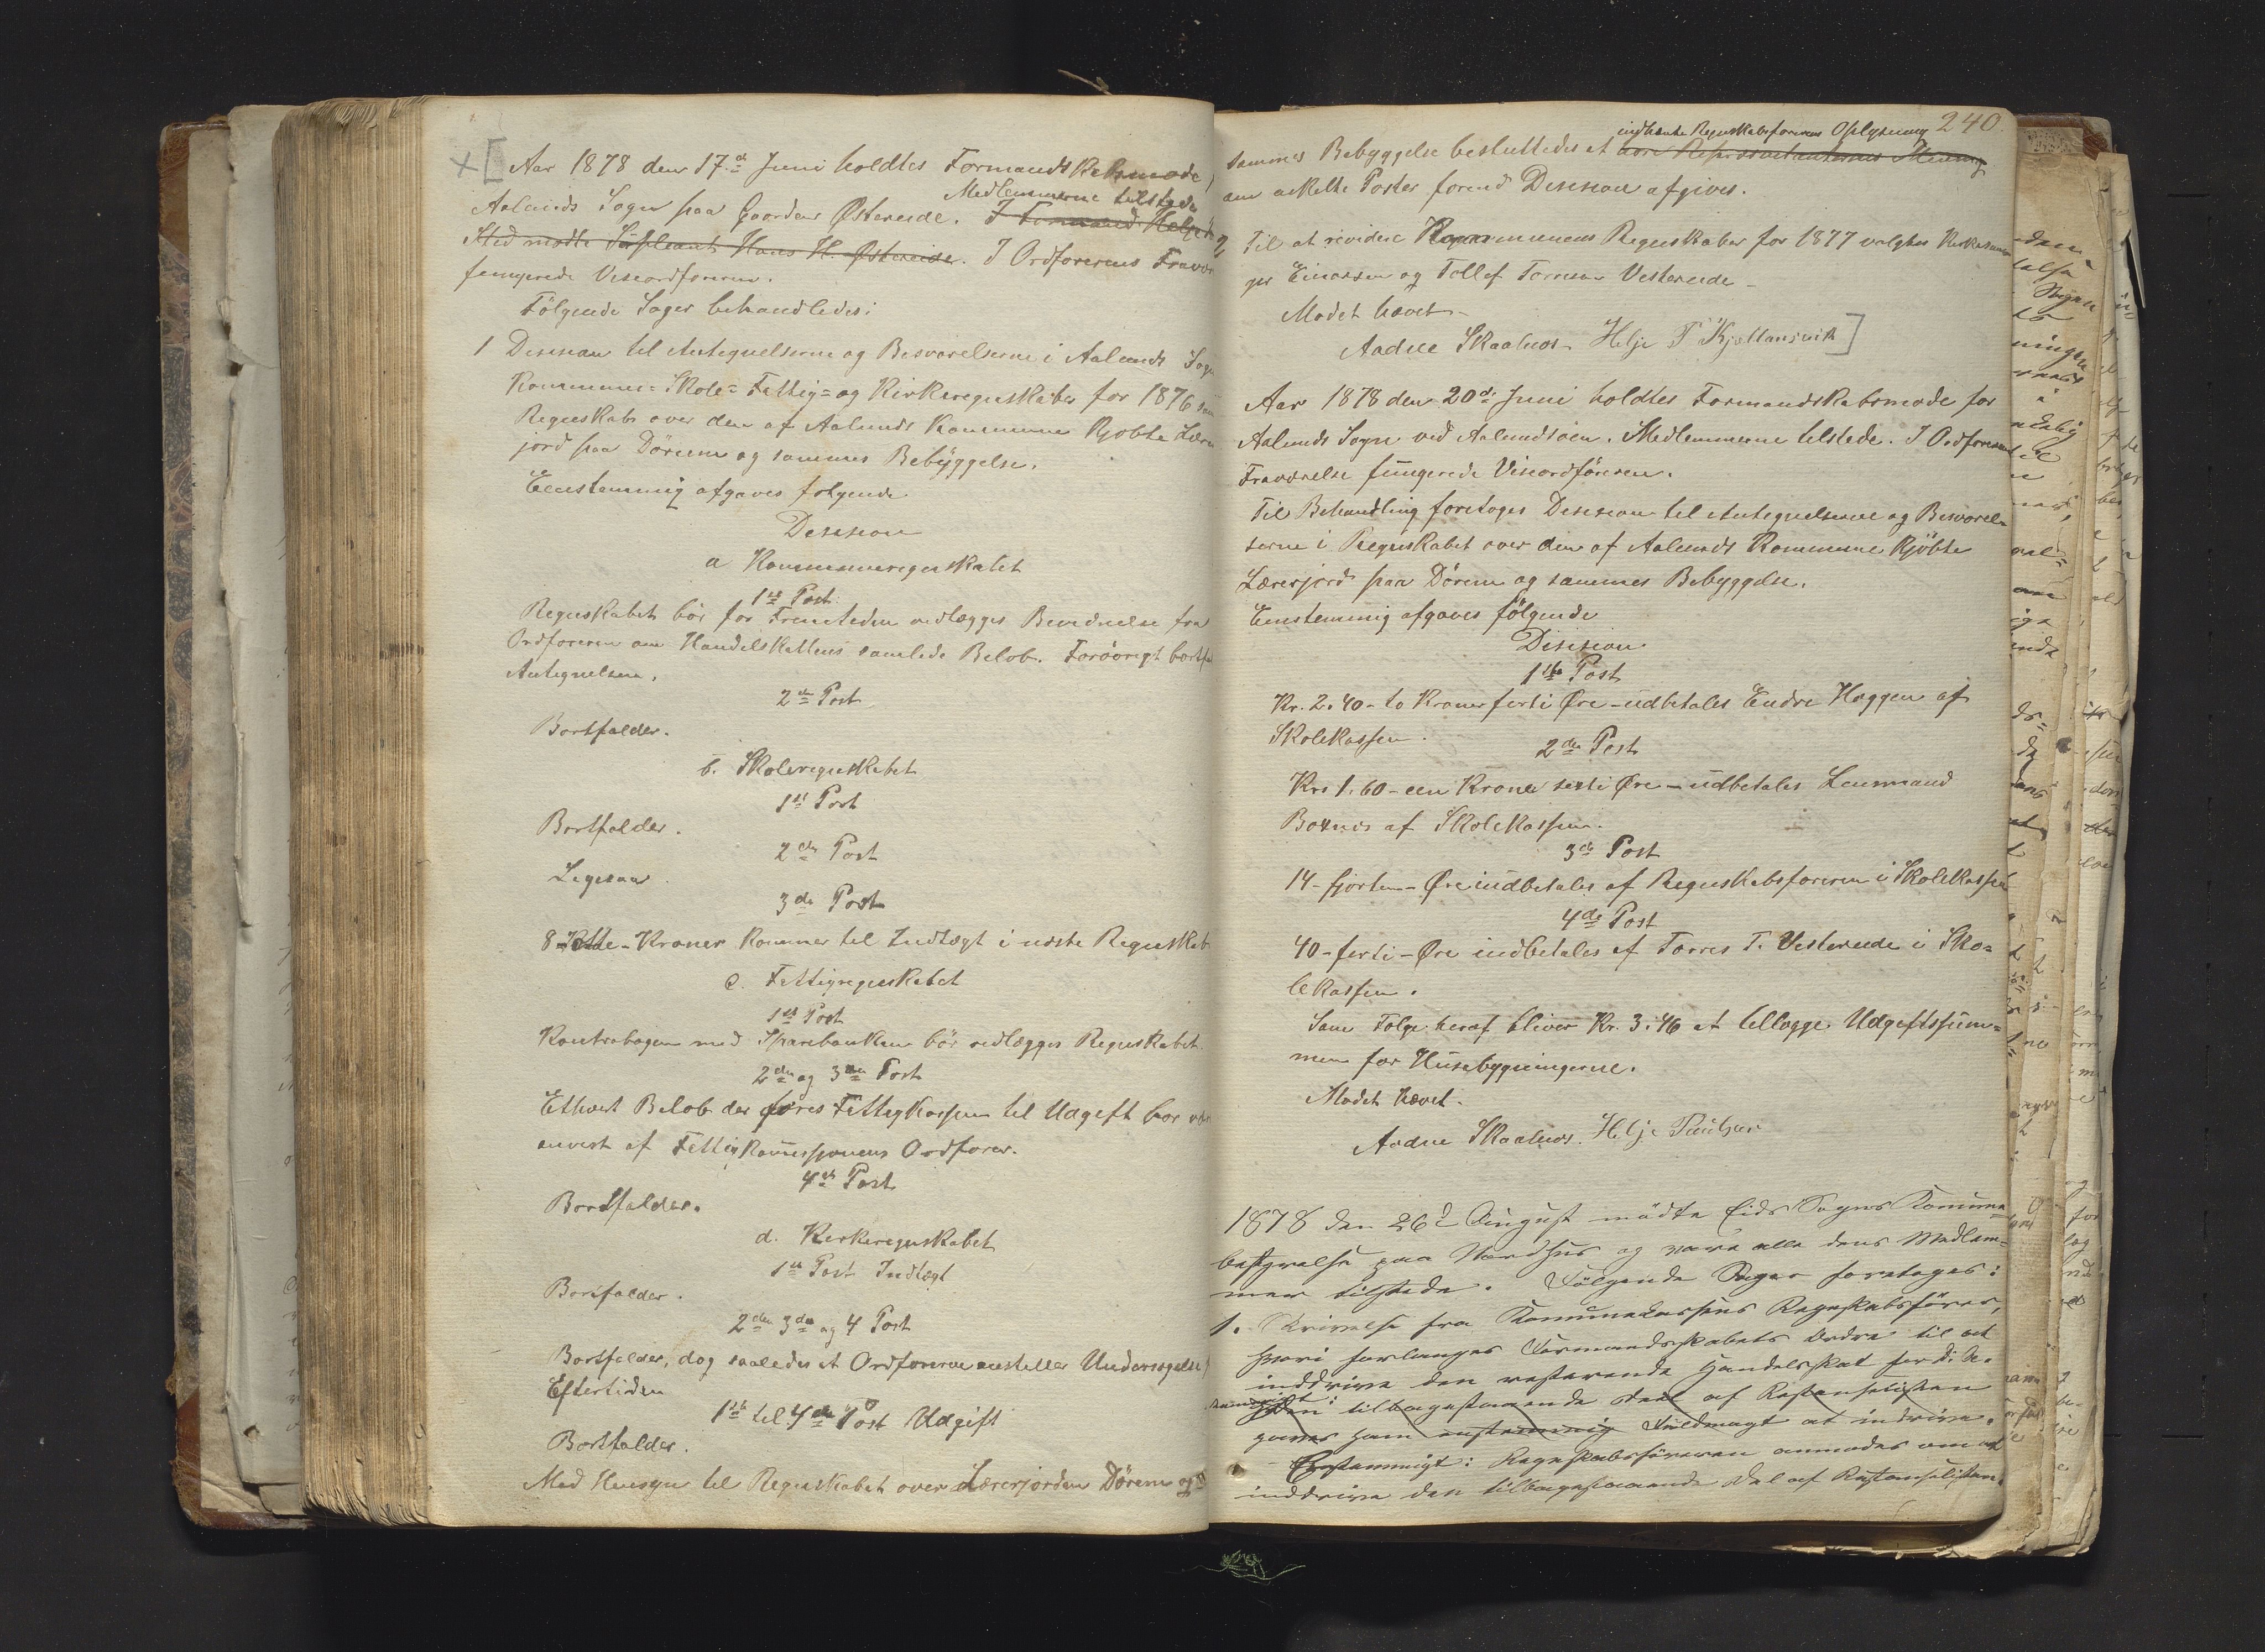 Aar 1878 den 17de Juni holdtes Formandskabsmøde
Aalunds Sogn paa Gaarden Østereide. Medlemmerne tilstede
I Formand Helje
Sted mødte Supleant Hans H. Østereide. I Ordførerens Fravær
fungerede Viseordføreren.
Følgende Sager behandledes:
1 Desision til Antegnelserne og Besvarelserne i Aalunds Sogn
Kommune= Skole= Fattig= og Kirkeregnskaber for 1876
Regnskabs over den af Aalunds Kommune Kjøbte Lærer
jord paa Dörum og sammes Bebyggelse.
Eenstemmig afgaves følgende
Desision
a Kommuneregnskabet
1ste Post
Regnskabet bör for Fremtiden vedlægges Bevidnelse fra
Ordføreren om Handelskattens samlede Beløb. Forøvrigt bortfal
Antegnelsen.
2den Post
Bortfalder.
b. Skoleregnskabet
1ste Post
Bortfalder.
2den Post
Ligesaa
3die Post
8 - Otte - Kroner Kommer til Indtægt i næste Regnskab
c. Fattigregnskabet
1ste Post
Kontrabogen med Sparebanken bör vedlægges Regnskabet.
2den og 3die Post
Ethvert Beløb der føres Fattigkassen til Udgift bør være
anvist af Fattigkommissjonens Ordfører.
4de Post
Bortfalder.
d. Kirkeregnskabet
1ste Post Indtægt
Bortfalder.
2den 3die og 4 Post
Bortfalder, dog saaledes at Ordførerne anstiller Undersøgelse
Eftertiden
1ste til 4de Post Udgift
Bortfalder.
Med Hensyn til Regnskabet over Lærerjorden Dörum og
240.
indhente Regnskabsførerens Oplysning
sammes Bebyggelse besluttedes at høre Repræsentanternes Mening
om enkelte Poster forend Desision afgives.
2 Til at revidere Kommunens Regnskaber for 1877 valgtes Kirkesan
ger Einarsen og Tollef Torresen Vestereide -
Mødet hævet -
Aadne Skaalnes Helje P Kjellanjvik
Aar 1878 den 20de Juni holdtes Formandskabsmøde for
Aalunds Sogn ved Aalundsöen. Medlemmerne tilstede. I Ordførerens
Fraværelse fungerede Viseordføreren.
Til Behandling foretoges Desision til Antegnelserne og Besvarel=
serne i Regnskabet over den af Aalunds Kommune Kjøbte
Lærerjord paa Dörum og sammes Bebyggelse.
Eenstemmig afgaves følgende
Disision
1ste Post
Kr. 2.40 - to Kroner forti Øre - udbetales Endre Haggen af
Skolekassen.
2den Post
Kr. 1.60 - een Krone sexti Øre - udbetales Lensmand
Boxnes af Skolekassen.
3die Post
14 - fjorten - Øre indbetales af Regnskabsføreren i Skolekassen
4de Post
40 - forti - Øre indbetales af Torres T. Vestereide i Sko=
lekassen.
Som Følge heraf bliver Kr. 3.46 at tillægge Udgiftssum=
men for Husebygningerne.
Mødet hævet.
Aadne Skaalnes. Helje Paulsen
1878 den 26d August mödte Eids Sogns Komune=
bestyrelse paa Nordhus og vare alle dens Medlem=
mer tilstede. Fölgende Sager foretoges:
1. Skrivelse fra Komunekassens Regnskabsförer,
hvori forlanges Formandsskabets Ordre til at
inddrive den resterende Handelsskat for d. A.
Den tilbagestaaende Deel af Restanselisten
gaves ham enstemmig Fuldmagt at indrive.
Enstemmigt: Regnskabsföreren anmodes om at
inddrive den tilbagestaaende Del af Restanselisten.